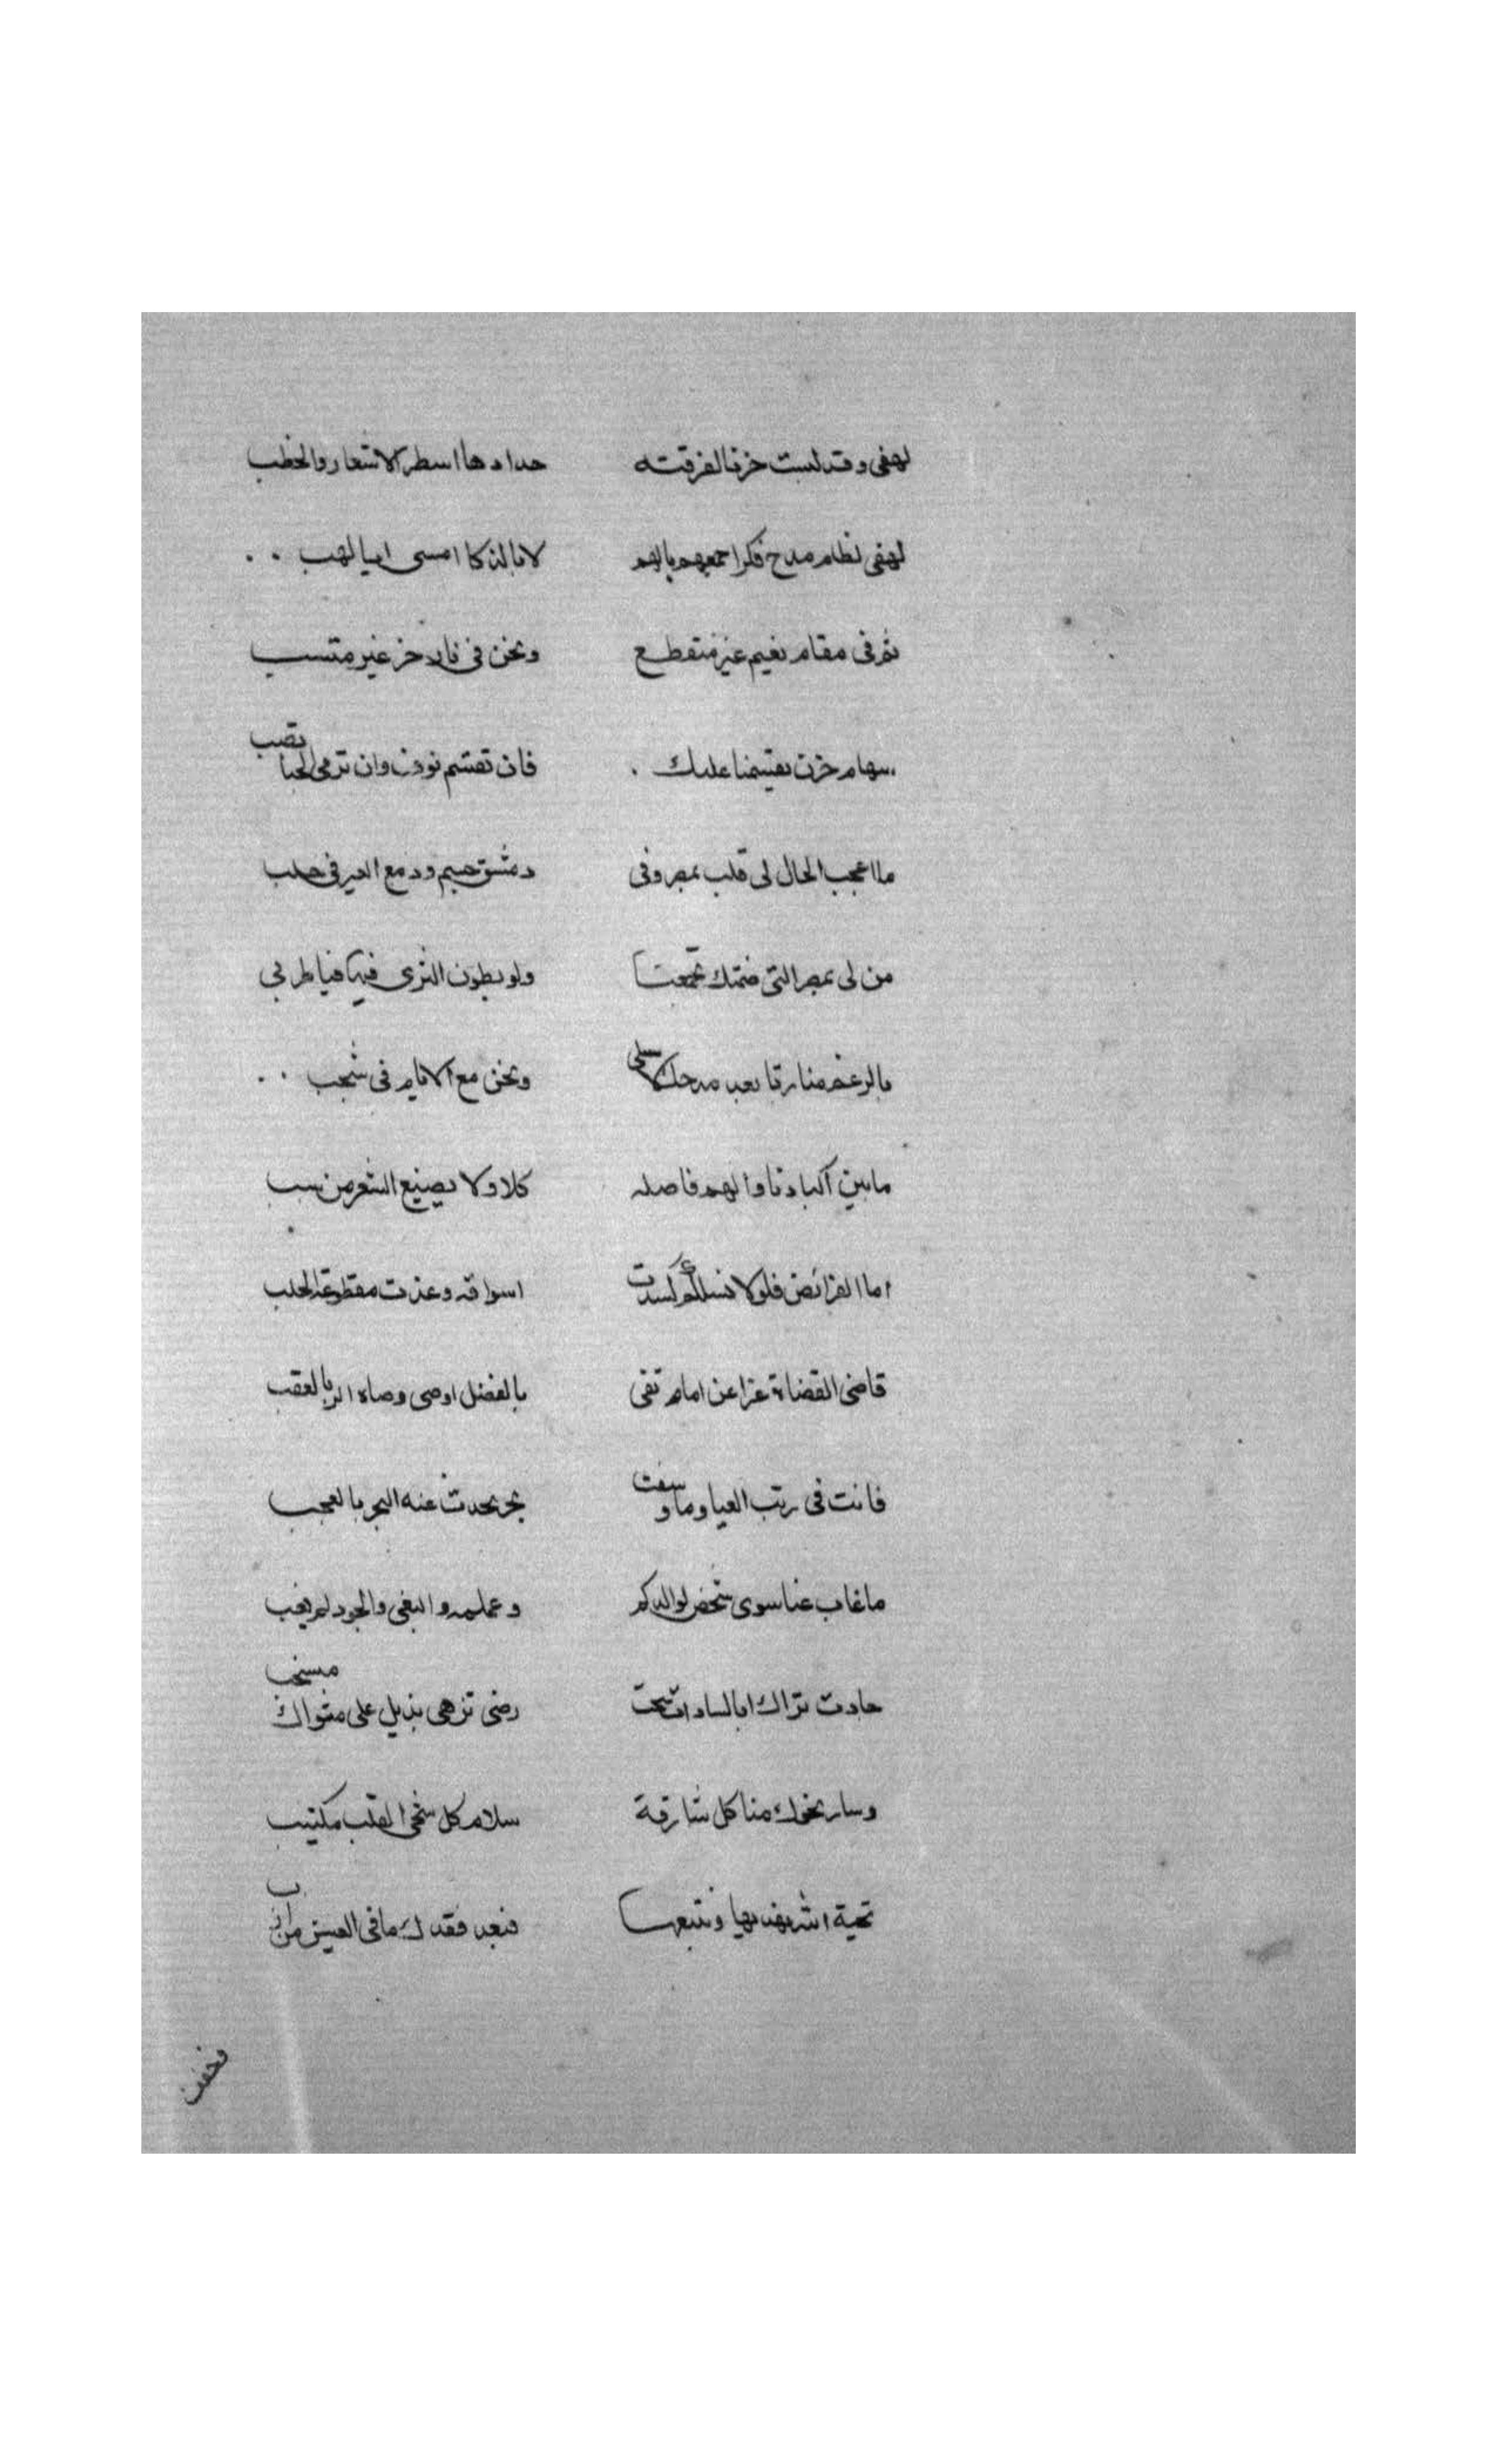 لهفى وقد لبست حزنا لفرقته حدادها اسطر الاشعار والخطب
لهفى لنظام مدح فكر اجمعهم بالهم لا بالذكا امسى ابيا لهب
ثم فى مقام نعيم غير منقطع ونحن فى نار حزن غير متئب
سهام حزن نقتسمها عليك فان تقتسم نودت وان ترمى الحبا تصب
ما اعجب الحال لى قلب بمصر وفى دمشق جسم ودمع العين فى حلب
من لى بمصر التى ضمتك تجمعنا ولو بطون الثرى فيها فيا طربى
بالرغم منا رقا بعد مدحك لا تسلى ونحن مع الايام فى شجب
ما بين اكبادنا والهم فاصله كلا ولا يصنيع الشعر من سبب
اما القرائض فلولا نسلكم كسدت اسواقه وغدت مقطوعة الجلب
قاضى القضاة عزا عن امام تقى بالفضل اوصى وصاه الربا لعقب
فانت فى رتب العيا وما وسقت بحر يحدث عنه البحر بالعجب
ما غاب عنا سوى شخص لوالدكم وعلمه والتقى والجود لم يغب
جادت ثراك ابا السادات سحب رضى تزهى بذيل على مثواك منسحب
وسار نحوك منا كل شارقة سلام كل شجى القلب مكتيب
تحية الله نهديها ونتبعها فبعد فقدك ما فى العيش من ارب